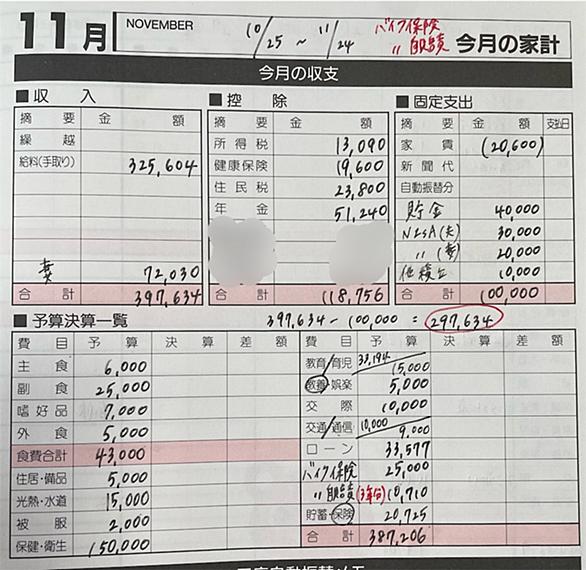 11月 NOVEMBER 10/25 ～ 11/24 バイク保険
〃 自賠責 今月の家計
今月の収支
■収 入
摘 要 金 額
繰 越
給料(手取り) 325,604
妻 72,030
合 計 397,634
■控 除
摘 要 金 額
所 得 税 13,090
健康保険 19,600
住 民 税 23,800
年 金 51,240
合 計 118,756
■固定支出
摘 要 金 額 支払日
家 賃 (20,600)
新 聞 代
自動振替分
貯金 40,000
NISA(夫) 30,000
〃 (妻) 20,000
他積立 10,000
合 計 100,000
■予算決算一覧 397,634 － 100,000 = 297,634
費 目 予 算 決 算 差 額
主 食 6,000
副 食 25,000
嗜 好 品 7,000
外 食 5,000
食費合計 43,000
住居・備品 5,000
光熱・水道 15,000
被 服 2,000
保健・衛生 150,000
費 目 予 算 決 算 差 額
教育/育児 33,194 15,000
教養・娯楽 5,000
交 際 10,000
交通/通信 10,000 9,000
ローン 33,577
バイク保険 25,000
〃 自賠責 (3年分) 10,710
貯蓄・保険 20,725
合 計 387,206